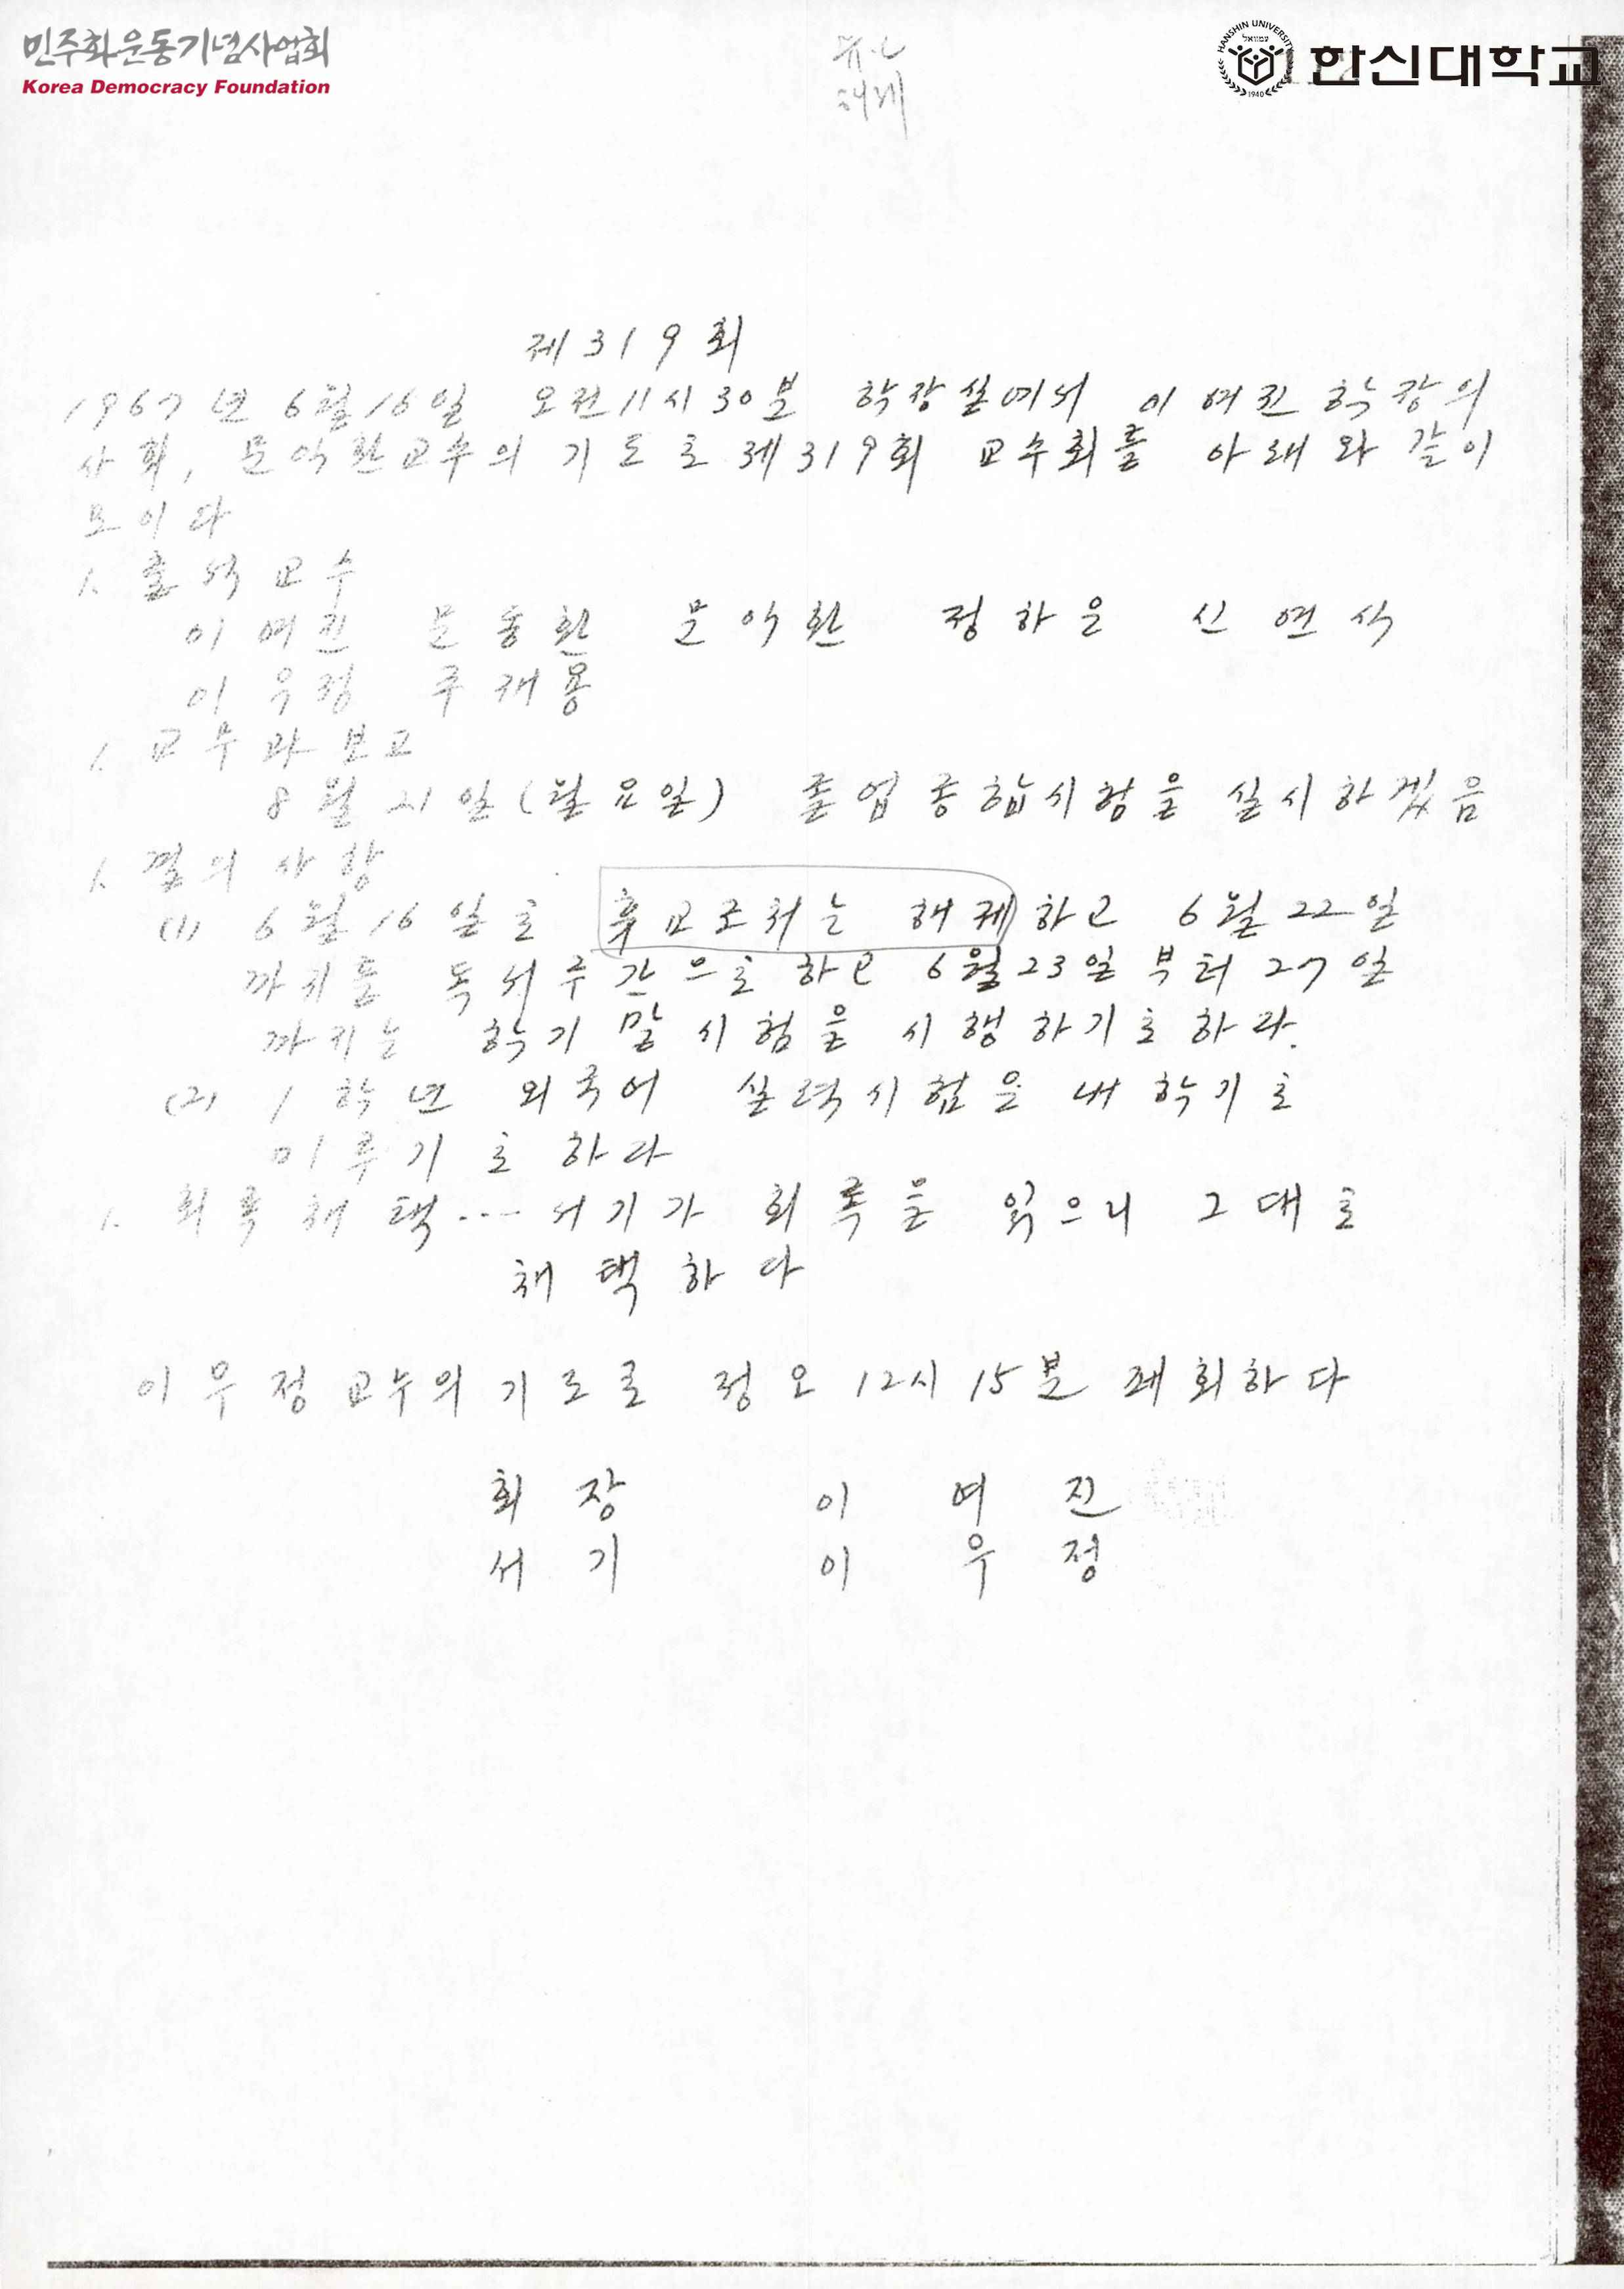 민주화운동기념사업회
Korea Democracy Foundation
HANSHIN UNIVERSITY
1940
한신대학교
해제
제319회
1967년 6월16일 오전11시30분 학장실에서 이여진학장의
사회, 문익환교수의 기도로 제319회 교수회를 아래와 같이
모이다
1. 출석교수
이여진 문동환 문익환 정하은 신연식
이우정 주재용
1. 교무과보고
8월 21일(월요일) 졸업종합시험을 실시하겠음
1. 결의사항
(1) 6월16일로 휴교조처는 해제하고 6월22일
까지를 독서주간으로 하고 6월23일부터 27일
까지는 학기말시험을 시행하기로 하다.
(2) 1학년 외국어 실력시험을 내학기로
미루기로 하다
1. 회록채택...서기가 회록을 읽으니 그대로
채택하다
이우정교수의 기도로 정오 12시15분 폐회하다
회장 이여진
서기 이우정